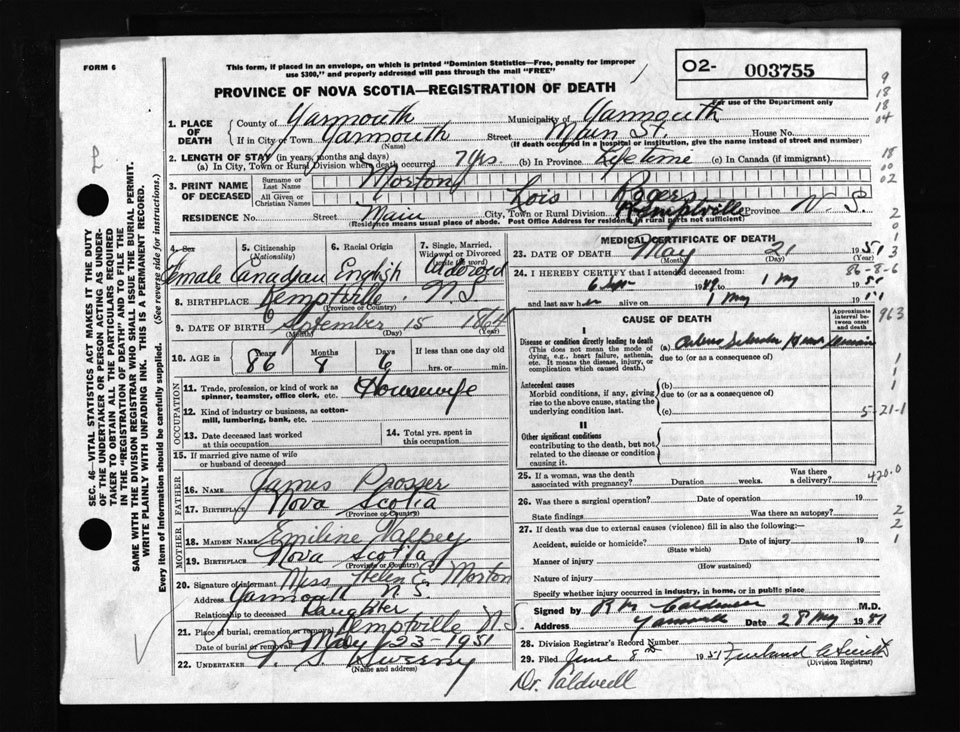 FORM 6
This form, if placed in an envelope, on which is printed "Dominion Statistics—Free, penalty for improper
use $300," and properly addressed will pass through the mail "FREE"
PROVINCE OF NOVA SCOTIA—REGISTRATION OF DEATH
O2- 003755
For use of the Department only
1. PLACE OF DEATH
County of Yarmouth Municipality of Yarmouth
If in City or Town Yarmouth Street Main St. House No.
(Name) (If death occurred in a hospital or institution, give the name instead of street and number)
2. LENGTH OF STAY (in years, months and days)
(a) In City, Town or Rural Division where death occurred 7 yrs. (b) In Province Lifetime (c) In Canada (if immigrant)
3. PRINT NAME OF DECEASED
Surname or Last Name Morton
All Given or Christian Names Lois Rogers
RESIDENCE No. Street Main City, Town or Rural Division Kemptville Province N S.
(Residence means usual place of abode. Post Office Address for residents in rural parts not sufficient)
4. Sex
Female
5. Citizenship
(Nationality)
Canadian
6. Racial Origin
English
7. Single, Married,
Widowed or Divorced
(write the word)
Widowed
8. BIRTHPLACE Kemptville N.S.
(Province or Country)
9. DATE OF BIRTH September 15 1864
(Month) (Day) (Year)
10. AGE in Years Months Days If less than one day old
86 8 6 hrs. or min.
OCCUPATION
11. Trade, profession, or kind of work as
spinner, teamster, office clerk, etc. Housewife
12. Kind of industry or business, as cotton-
mill, lumbering, bank, etc.
13. Date deceased last worked
at this occupation
14. Total yrs. spent in
this occupation
15. If married give name of wife
or husband of deceased
FATHER
16. NAME James Prosser
17. BIRTHPLACE Nova Scotia
(Province or Country)
MOTHER
18. MAIDEN NAME Emiline
19. BIRTHPLACE Nova Scotia
(Province or Country)
20. Signature of informant Miss Helen G. Morton
Address Yarmouth N.S.
Relationship to deceased Daughter
21. Place of burial, cremation or removal Kemptville N.S
Date of burial or removal May 23-1951
22. UNDERTAKER V. S. Sweeny
(Name and address)
MEDICAL CERTIFICATE OF DEATH
23. DATE OF DEATH May 21 1951
(Month) (Day) (Year)
24. I HEREBY CERTIFY that I attended deceased from:
to 1 My
and last saw her on 1 My
CAUSE OF DEATH
Approximate
interval be-
tween onset
and death
I
Disease or condition directly leading to death (a)
(This does not mean the mode of
dying, e.g., heart failure, asthenia,
etc. It means the disease, injury, or
complication which caused death.)
due to (or as a consequence of)
Antecedent causes
Morbid conditions, if any, giving
rise to the above cause, stating the
underlying condition last.
(b)
due to (or as a consequence of)
(c)
II
Other significant conditions
contributing to the death, but not
related to the disease or condition
causing it.
25. If a woman, was the death
associated with pregnancy? Duration weeks. Was there
a delivery?
26. Was there a surgical operation? Date of operation 19
State findings Was there an autopsy?
27. If death was due to external causes (violence) fill in also the following:—
Accident, suicide or homicide? Date of injury 19
(State which)
Manner of injury
(How sustained)
Nature of injury
Specify whether injury occurred in industry, in home, or in public place
Signed by R M Caldwell M.D.
Address Yarmouth Date 28 My 1951
28. Division Registrar's Record Number
29. Filed June 8th 1951
(Division Registrar)
Dr. Caldwell
SEC. 46— VITAL STATISTICS ACT MAKES IT THE DUTY
OF THE UNDERTAKER OR PERSON ACTING AS UNDER-
TAKER TO OBTAIN ALL THE PARTICULARS REQUIRED
IN THE "REGISTRATION OF DEATH" AND TO FILE THE
SAME WITH THE DIVISION REGISTRAR WHO SHALL ISSUE THE BURIAL PERMIT.
WRITE PLAINLY WITH UNFADING INK. THIS IS A PERMANENT RECORD.
Every item of information should be carefully supplied. (See reverse side for instructions.)
9
18
18
04
18
00
02
2
0
1
3
86-8-6
963
1
1
1
5-21-1
420.0
2
2
1